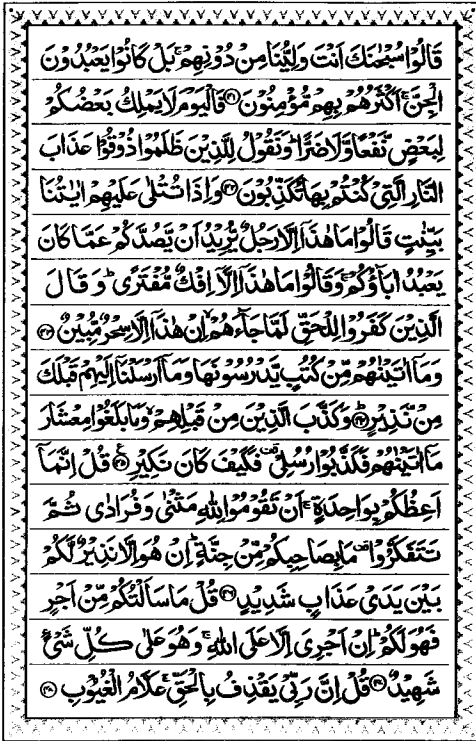 قَالُوْا سُبْحٰنَكَ اَنْتَ وَلِيُّنَا مِنْ دُوْنِهِمْ ۚ بَلْ كَانُوْا يَعْبُدُوْنَ
الْجِنَّ ۚ اَكْثَرُهُمْ بِهِمْ مُّؤْمِنُوْنَ ۝۴۱ فَالْيَوْمَ لَا يَمْلِكُ بَعْضُكُمْ
لِبَعْضٍ نَّفْعًا وَّلَا ضَرًّا ؕ وَنَقُوْلُ لِلَّذِيْنَ ظَلَمُوْا ذُوْقُوْا عَذَابَ
النَّارِ الَّتِيْ كُنْتُمْ بِهَا تُكَذِّبُوْنَ ۝۴۲ وَاِذَا تُتْلٰى عَلَيْهِمْ اٰيٰتُنَا
بَيِّنٰتٍ قَالُوْا مَا هٰذَاۤ اِلَّا رَجُلٌ يُّرِيْدُ اَنْ يَّصُدَّكُمْ عَمَّا كَانَ
يَعْبُدُ اٰبَآؤُكُمْ ۚ وَقَالُوْا مَا هٰذَاۤ اِلَّاۤ اِفْكٌ مُّفْتَرًى ؕ وَقَالَ
الَّذِيْنَ كَفَرُوْا لِلْحَقِّ لَمَّا جَآءَهُمْ ۙ اِنْ هٰذَاۤ اِلَّا سِحْرٌ مُّبِيْنٌ ۝۴۳
وَمَاۤ اٰتَيْنٰهُمْ مِّنْ كُتُبٍ يَّدْرُسُوْنَهَا وَمَاۤ اَرْسَلْنَاۤ اِلَيْهِمْ قَبْلَكَ
مِنْ نَّذِيْرٍ ؕ۝۴۴ وَكَذَّبَ الَّذِيْنَ مِنْ قَبْلِهِمْ ۙ وَمَا بَلَغُوْا مِعْشَارَ
مَاۤ اٰتَيْنٰهُمْ فَكَذَّبُوْا رُسُلِيْ ۫ فَكَيْفَ كَانَ نَكِيْرِ ۝۴۵ قُلْ اِنَّمَاۤ
اَعِظُكُمْ بِوَاحِدَةٍ ۚ اَنْ تَقُوْمُوْا لِلّٰهِ مَثْنٰى وَفُرَادٰى ثُمَّ
تَتَفَكَّرُوْا ۫ مَا بِصَاحِبِكُمْ مِّنْ جِنَّةٍ ؕ اِنْ هُوَ اِلَّا نَذِيْرٌ لَّكُمْ
بَيْنَ يَدَيْ عَذَابٍ شَدِيْدٍ ۝۴۶ قُلْ مَا سَاَلْتُكُمْ مِّنْ اَجْرٍ
فَهُوَ لَكُمْ ؕ اِنْ اَجْرِيَ اِلَّا عَلَى اللّٰهِ ۚ وَهُوَ عَلٰى كُلِّ شَيْءٍ
شَهِيْدٌ ۝۴۷ قُلْ اِنَّ رَبِّيْ يَقْذِفُ بِالْحَقِّ ۚ عَلَّامُ الْغُيُوْبِ ۝۴۸